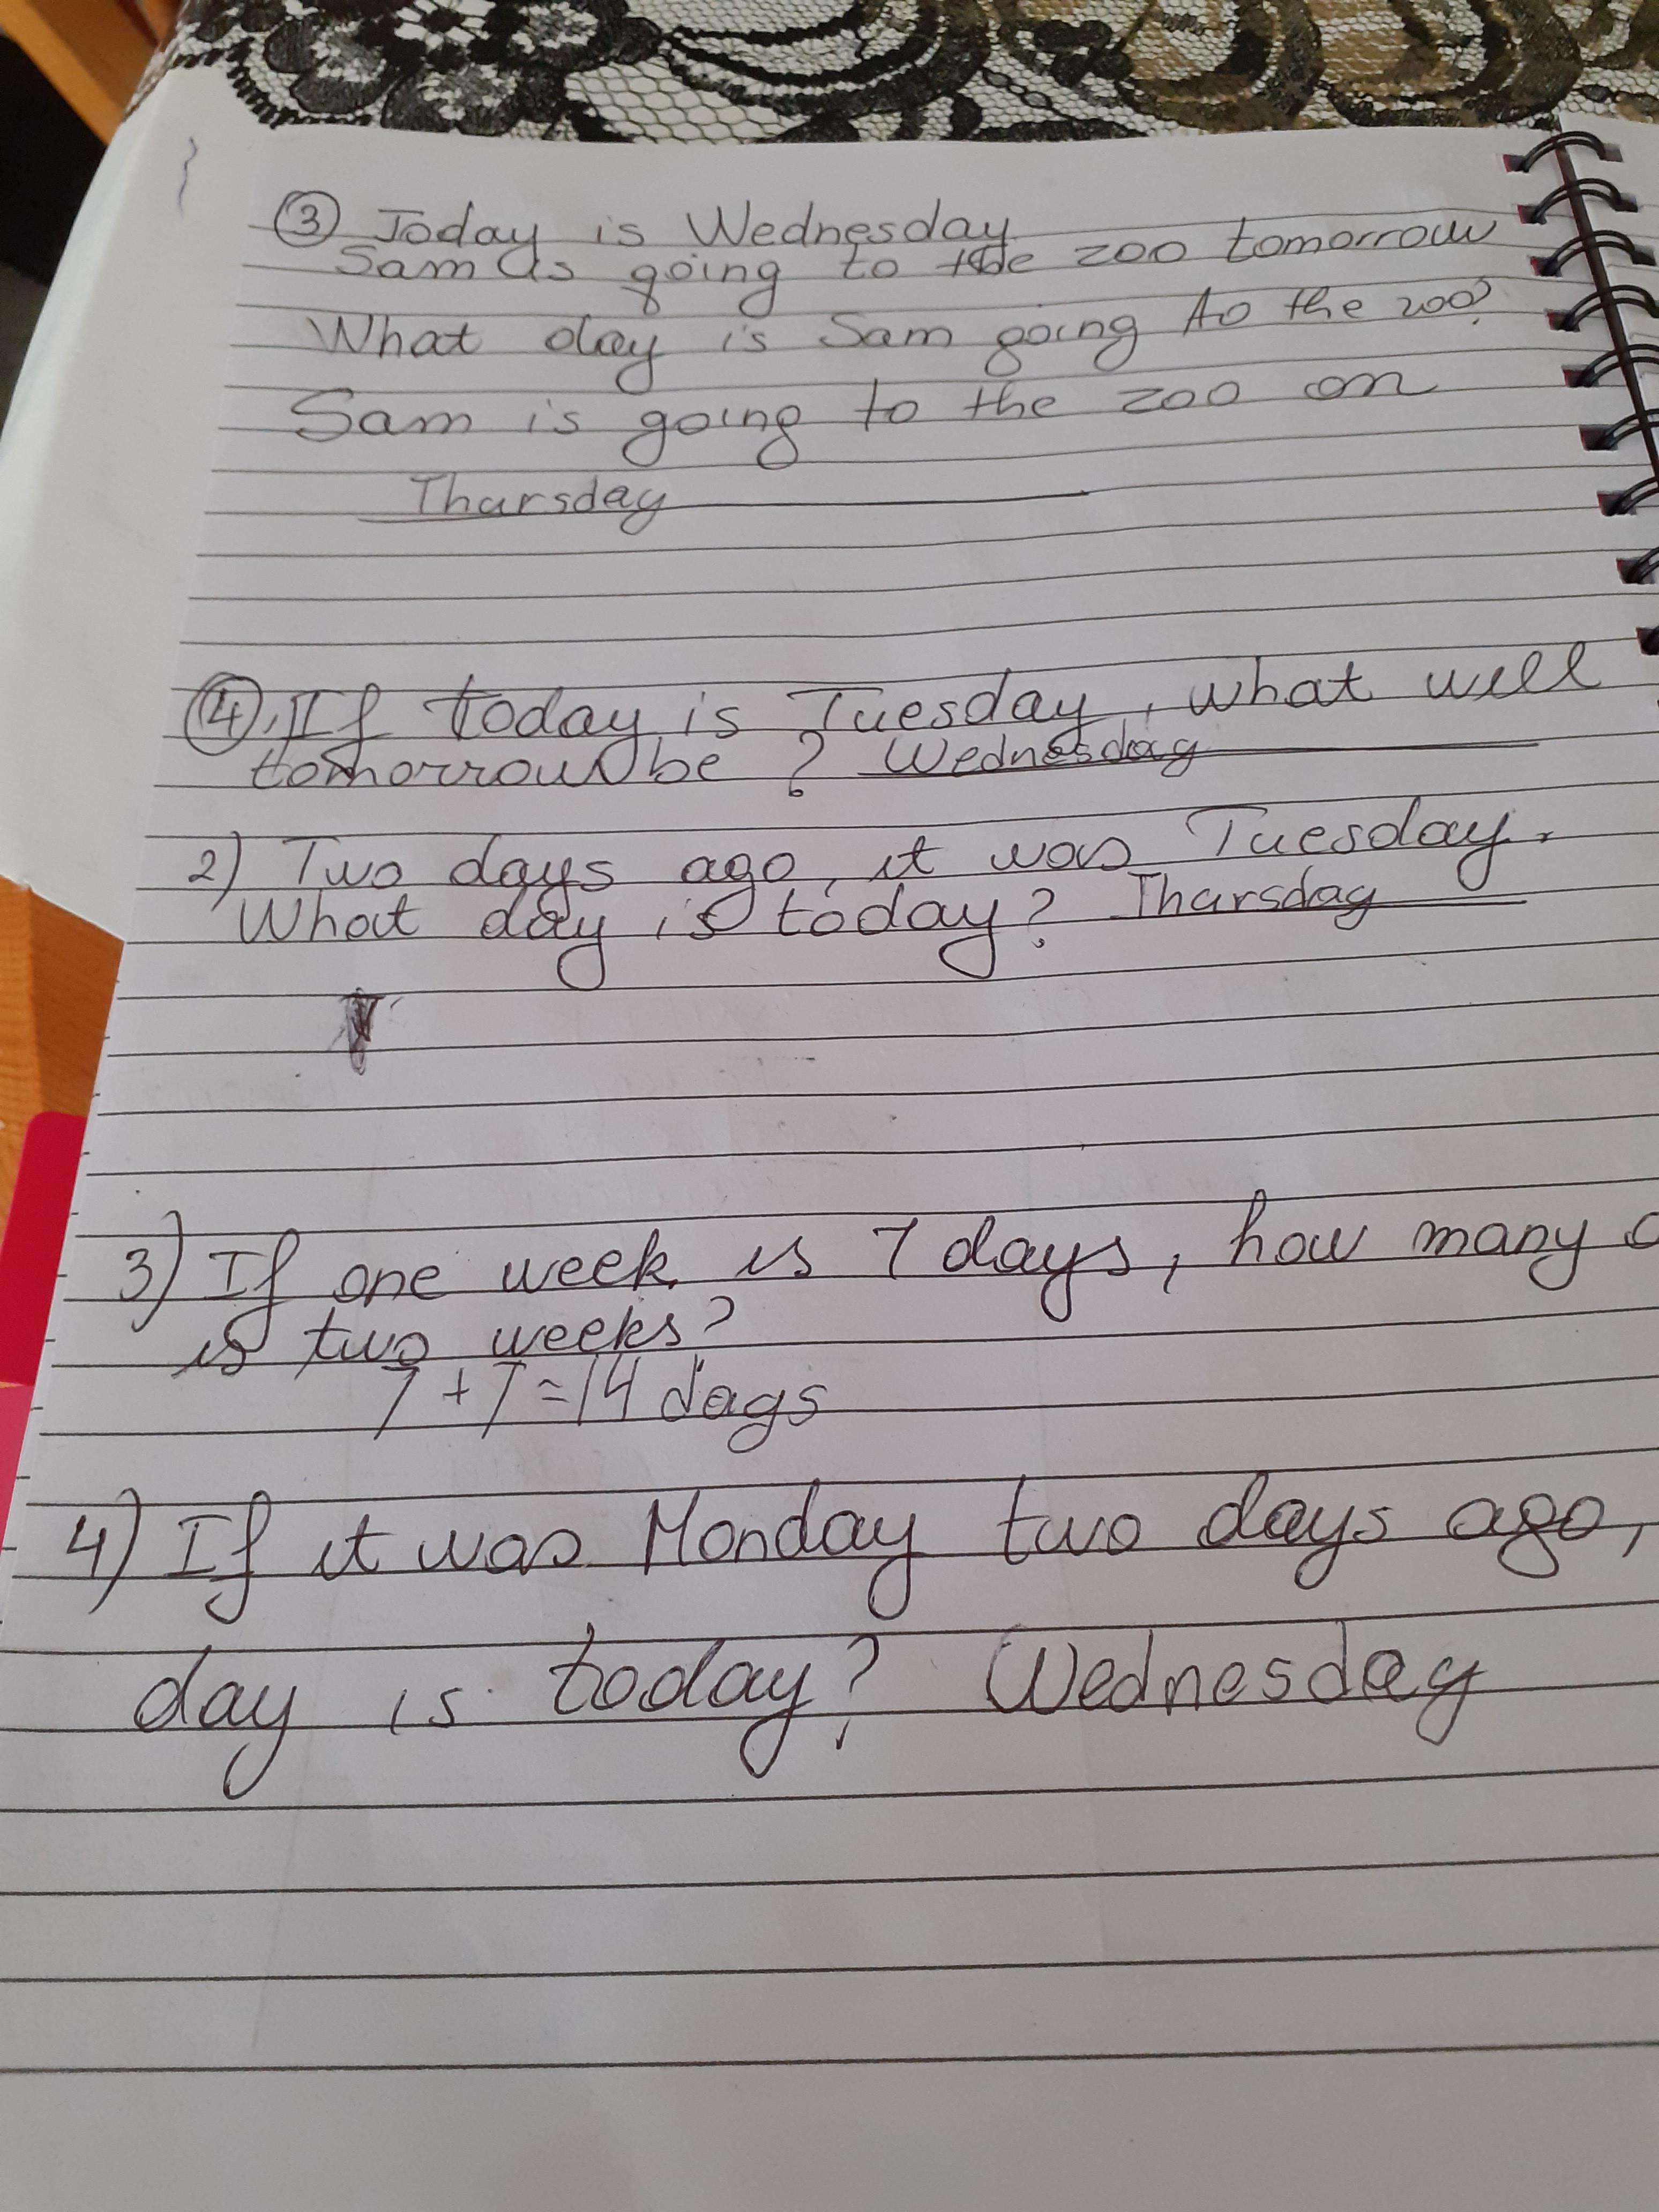 ③ Today is Wednesday
Sam is going to the zoo tomorrow
What day is Sam going to the zoo?
Sam is going to the zoo on
Thursday
④ If today is Tuesday, what will
tomorrow be? Wednesday
2) Two days ago, it was Tuesday.
What day is today? Thursday
3) If one week is 7 days, how many
is two weeks?
7+7=14 days
4) If it was Monday two days ago,
day is today? Wednesday